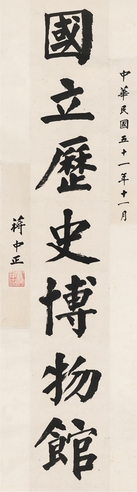 中華民國五十一年十一月
國立歷史博物館
蔣中正